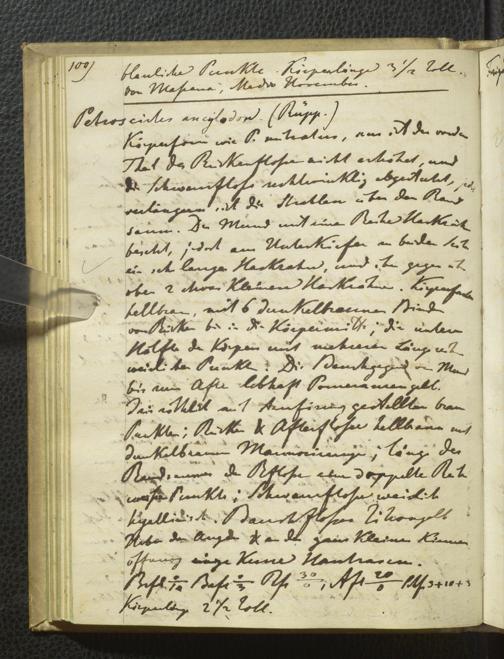 109)
blauliche Punkte. Körperlänge 3 1/2 Zoll.
von Massaua, Medio November.
Petroscirtes ancylodon. (Rüpp.)
Körperform wie P. mitratus, nur ist der vordere
Theil der Rückenflosse nicht erhöhet, und
die Schwanzflosse rechtwinklig abgestutzt,
verlängern sich die Strahlen über den Rand
saum. Der Mund mit eine Reihe Hackzähne
besetzt, jedoch am Unterkiefer an beiden Seite
ein sehr langer Hackzahn, und ihm gegenüber
oben 2 etwas kleinere Hackzähne. Körperfarbe
hellbraun, mit 6 dunkelbraunen Binden
von Rücken bis in die Körpermitte, die untere
Hälfte des Körpers mit mehreren Längsreihen
weislicher Punkte. Die Bauchgegend von Mund
bis zum After lebhaft Pomeranzengelb.
Iris röthlich mit kreisförmig gestellten braun
Punkten; Rücken & Afterflosse hellbraun mit
dunkelbraunen Marmorirung; längs des
Randsaumes der Rflosse eine doppelte Reihe
weißer Punkte; Schwanzflosse weislich
hyallinisch. Bauchflossen Citrongelb
Ueber den Augen & an der ganz kleinen Kiemen
öffnung einige kurze Hautfasern.
Rfs 30/0, Afs 20/0 3+10+3
Körperlänge 2 1/2 Zoll.